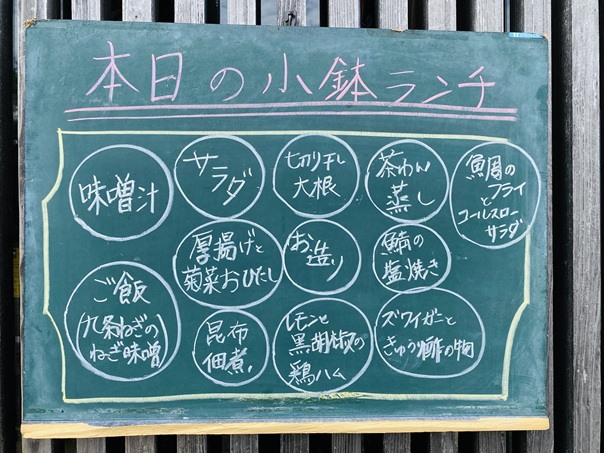 本日の小鉢ランチ
味噌汁
サラダ
切り干し
大根
茶わん
蒸し
鯛の
フライ
と
コールスロー
サラダ
厚揚げと
菊菜おひたし
お
造り
鯖の
塩焼き
ご飯
(九条ねぎの
ねぎ味噌)
昆布
佃煮
レモンと
黒胡椒の
鶏ハム
ズワイガニと
きゅうり酢の物